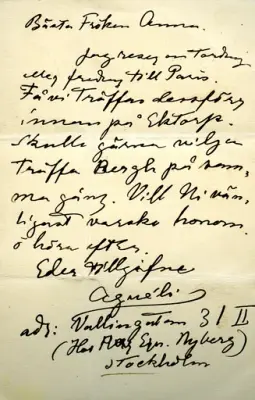 Bästa Fröken Anna.
Jag reser om Torsdag
eller fredag till Paris.
Få vi träffas dessförr
innan på Ektorp.
Skulle gärna vilja
träffa Bergh på sam
ma gång. Vill Ni vän
ligast varsko honom
o höra efter.
Eder tillgifne
Aguéli
adr: Vallingatan 3 / II
(Hos Egn. Nyberg)
Stockholm